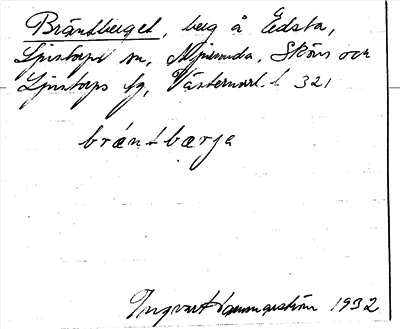 Bräntberget, berg å Edsta,
Ljustorps sn, Njurunda, Sköns och
Ljustorps tg, Västernorrl. l. 321
bränt bærje
Ingvar Hammarström 1932